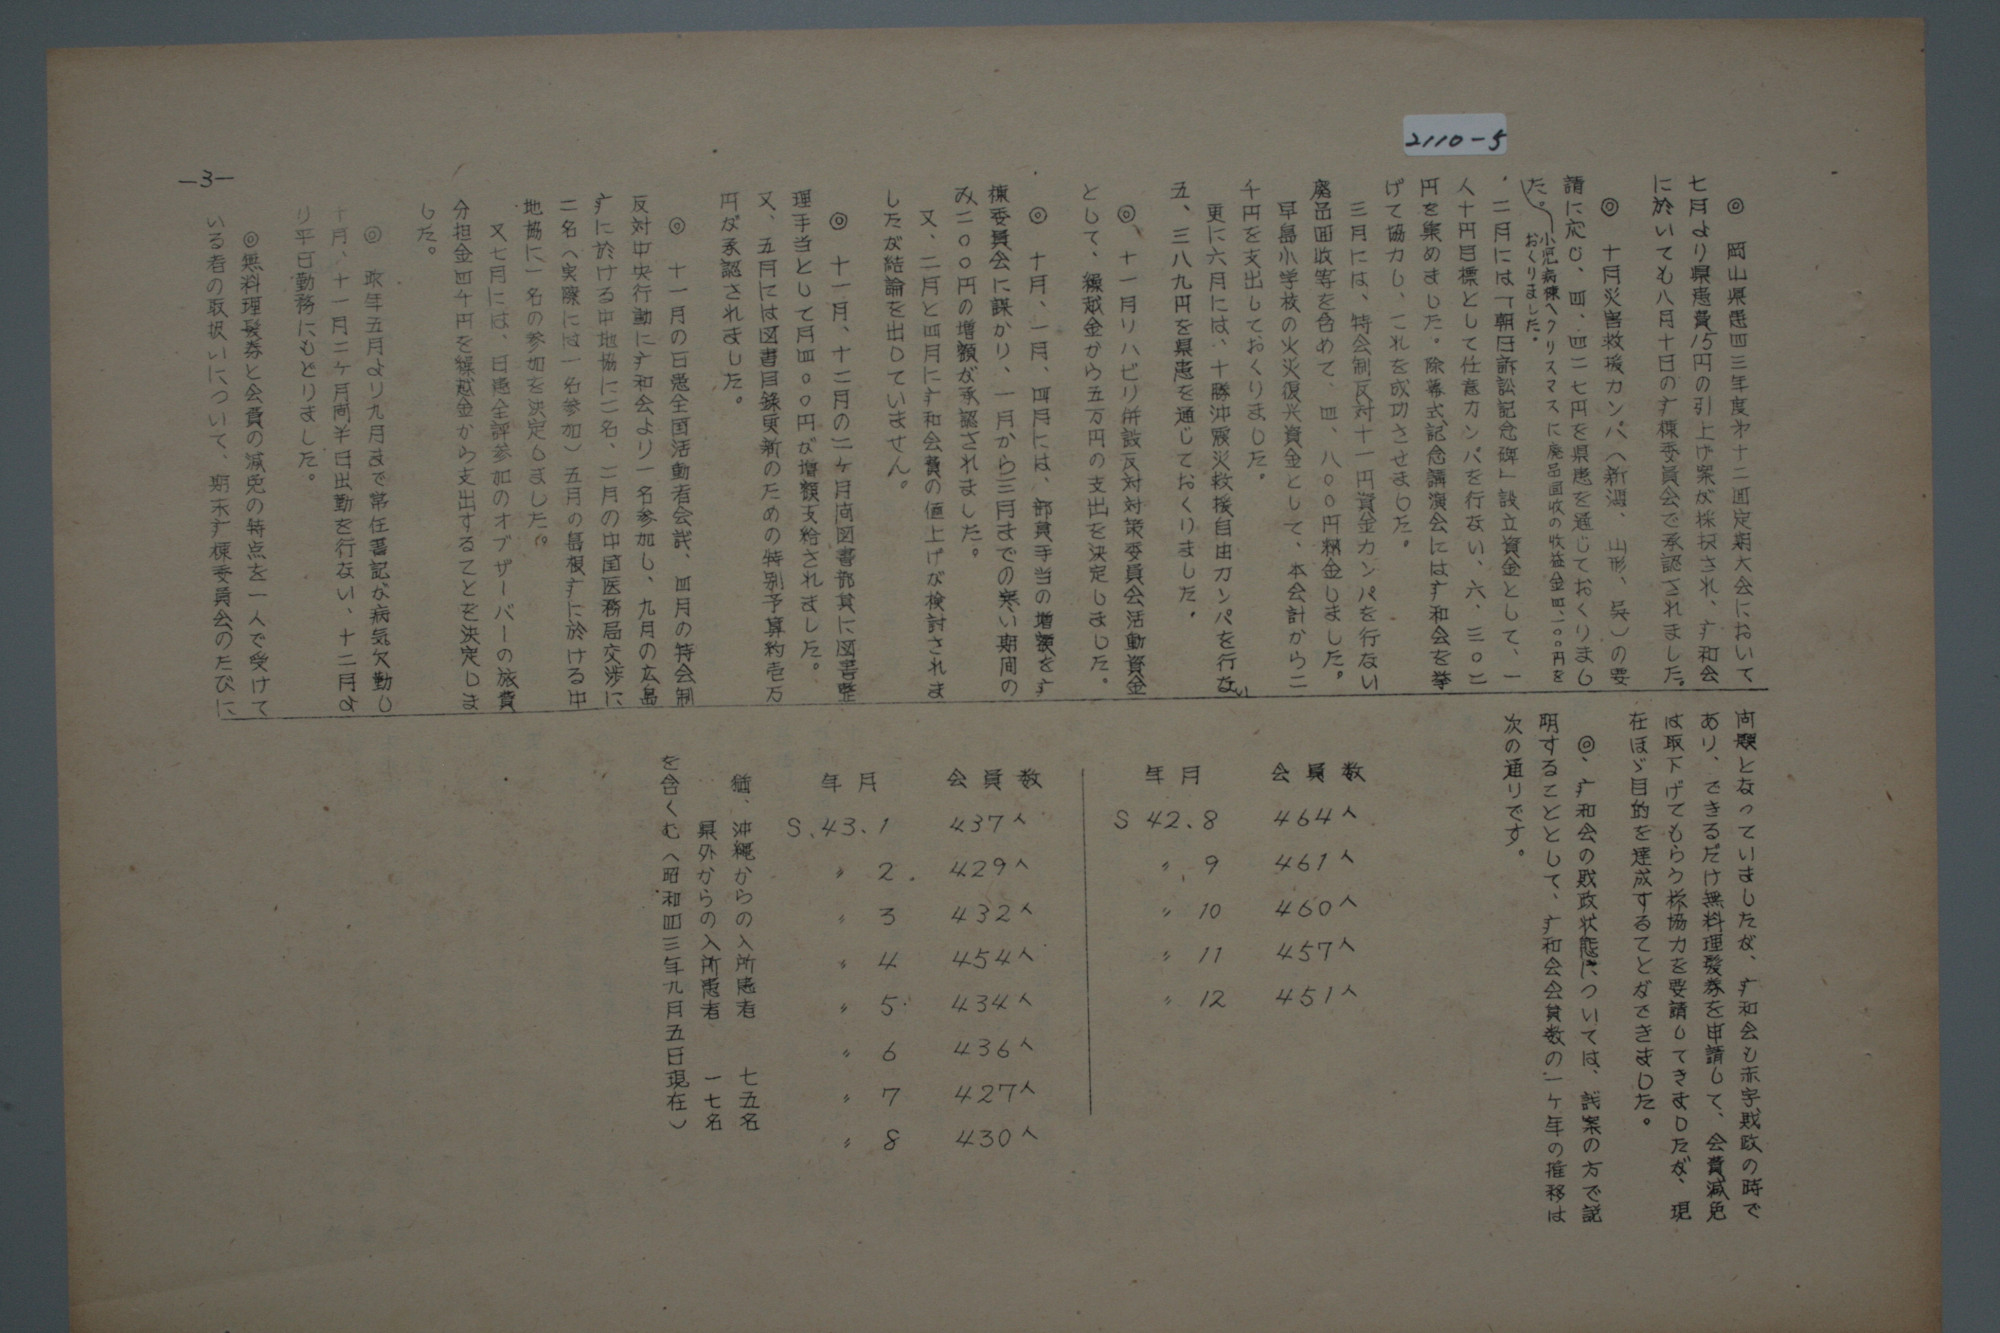 2110-5
◎ 岡山県患四三年度才十二回定期大会において
七月より県患費15円の引上げ案が採択され、疒和会
に於いても八月十日の疒棟委員会で承認されました。
◎ 十月災害救援カンパ(新潟、山形、呉)の要
請に応じ、四、四二七円を県患を通じておくりまし
た。(小児病棟へクリスマスに廃品回収の収益金四、一〇〇円を
おくりました。
二月には「朝日訴訟記念碑」設立資金として、一
人十円目標として任意カンパを行ない、六、三〇二
円を集めました。除幕式、記念講演会には疒和会を挙
げて協力し、これを成功させました。
三月には、特会制反対十一円資金カンパを行ない
廃品回收等を含めて、四、八〇〇円精金しました。
早島小学校の火災復兴資金として、本会計から二
千円を支出しておくりました。
更に六月には、十勝沖震災救援自由カンパを行ない
五、三八九円を県患を通じておくりました。
◎ 十一月リハビリ併設反対対策委員会活動資金
として、繰越金から五万円の支出を決定しました。
◎ 十月、一月、四月には、部員手当の増額を疒
棟委員会に諜かり、一月から三月までの寒い期间の
み二〇〇円の増額が承認されました。
又、二月と四月に疒和会費の値上げが検討されま
したが結論を出していません。
◎ 十一月、十二月の二ヶ月间図書部員に図書整
理手当として月四〇〇円が増額支給されました。
又、五月には図書目録更新のための特別予算約壱万
円が承認されました。
◎ 十一月の日患全国活動者会議、四月の特会制
反対中央行動に疒和会より一名参加し、九月の広島
疒に於ける中地協に二名、二月の中国医務局交渉に
二名(実際には一名参加)五月の島根疒に於ける中
地協に一名の参加を決定しました。
又七月には、日患全評参加のオブザーバーの旅費
分担金四千円を繰越金から支出することを決定しま
した。
◎ 昨年五月より九月まで常任書記が病気欠勤し
十月、十一月二ヶ月间半日出勤を行ない、十二月よ
り平日勤務にもどりました。
◎無料理髪券と会費の減免の特点を一人で受けて
いる者の取扱いについて、期末疒棟委員会のたびに
—3—
问題となっていましたが、疒和会も赤字財政の時で
あり、できるだけ無料理髪券を申請して、会費減免
は取下げてもらう様協力を要請してきましたが、現
在ほゞ目的を達成するてとができました。
◎、疒和会の財政状態については、議案の方で説
明することとして、疒和会会員数の一ヶ年の推移は
次の通りです。
年月 会員数
S 42.8 464人
〃 9 461人
〃 10 460人
〃 11 457人
〃 12 451人
年月 会員数
S.43.1 437人
〃 2 429人
〃 3 432人
〃 4 454人
〃 5 434人
〃 6 436人
〃 7 427人
〃 8 430人
猶、沖縄からの入所患者 七五名
県外からの入所患者 一七名
を含くむ(昭和四三年九月五日現在)